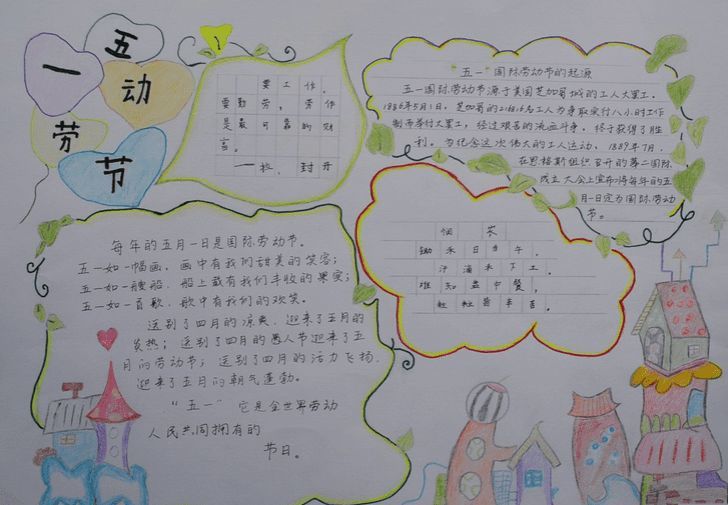 五
一
动
劳
节
要工作,
要勤劳,劳作
是最可靠的财
富。
——拉·封丹
"五一"国际劳动节的起源
五一国际劳动节源于美国芝加哥城的工人大罢工。
1886年5月1日,芝加哥的216万名工人为争取实行八小时工作
制而举行大罢工,经过艰苦的流血斗争,终于获得了胜
利。为纪念这次伟大的工人运动,1889年7月,
在恩格斯组织召开的第二国际
成立大会上宣布将每年的五
月一日定为国际劳动
节。
悯农
锄禾日当午,
汗滴禾下土。
谁知盘中餐,
粒粒皆辛苦。
每年的五月一日是国际劳动节。
五一如一幅画,画中有我们甜美的笑容;
五一如一艘船,船上载有我们丰收的果实;
五一如一首歌,歌中有我们的欢笑。
送别了四月的凉爽,迎来了五月的
炎热;送别了四月的愚人节迎来了五
月的劳动节;送别了四月的活力飞扬,
迎来了五月的朝气蓬勃。
"五一"它是全世界劳动
人民共同拥有的
节日。